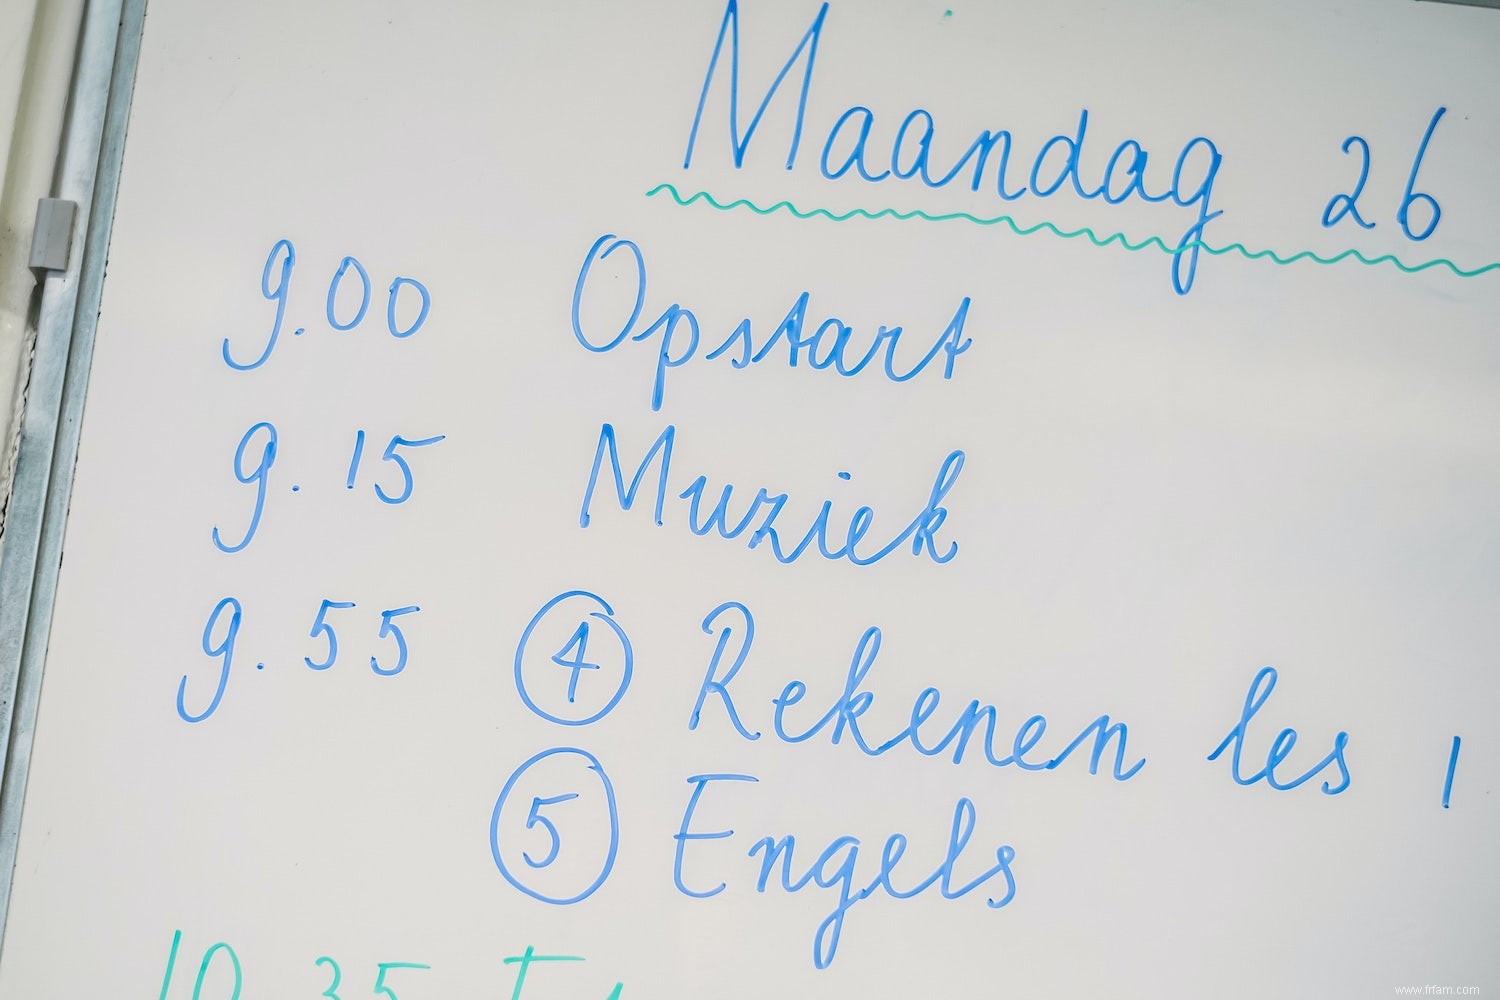 Maandag 26
9.00 Opstart
9.15 Muziek
9.55 4 Rekenen les 1
5 Engels
10.35
www.frfam.com